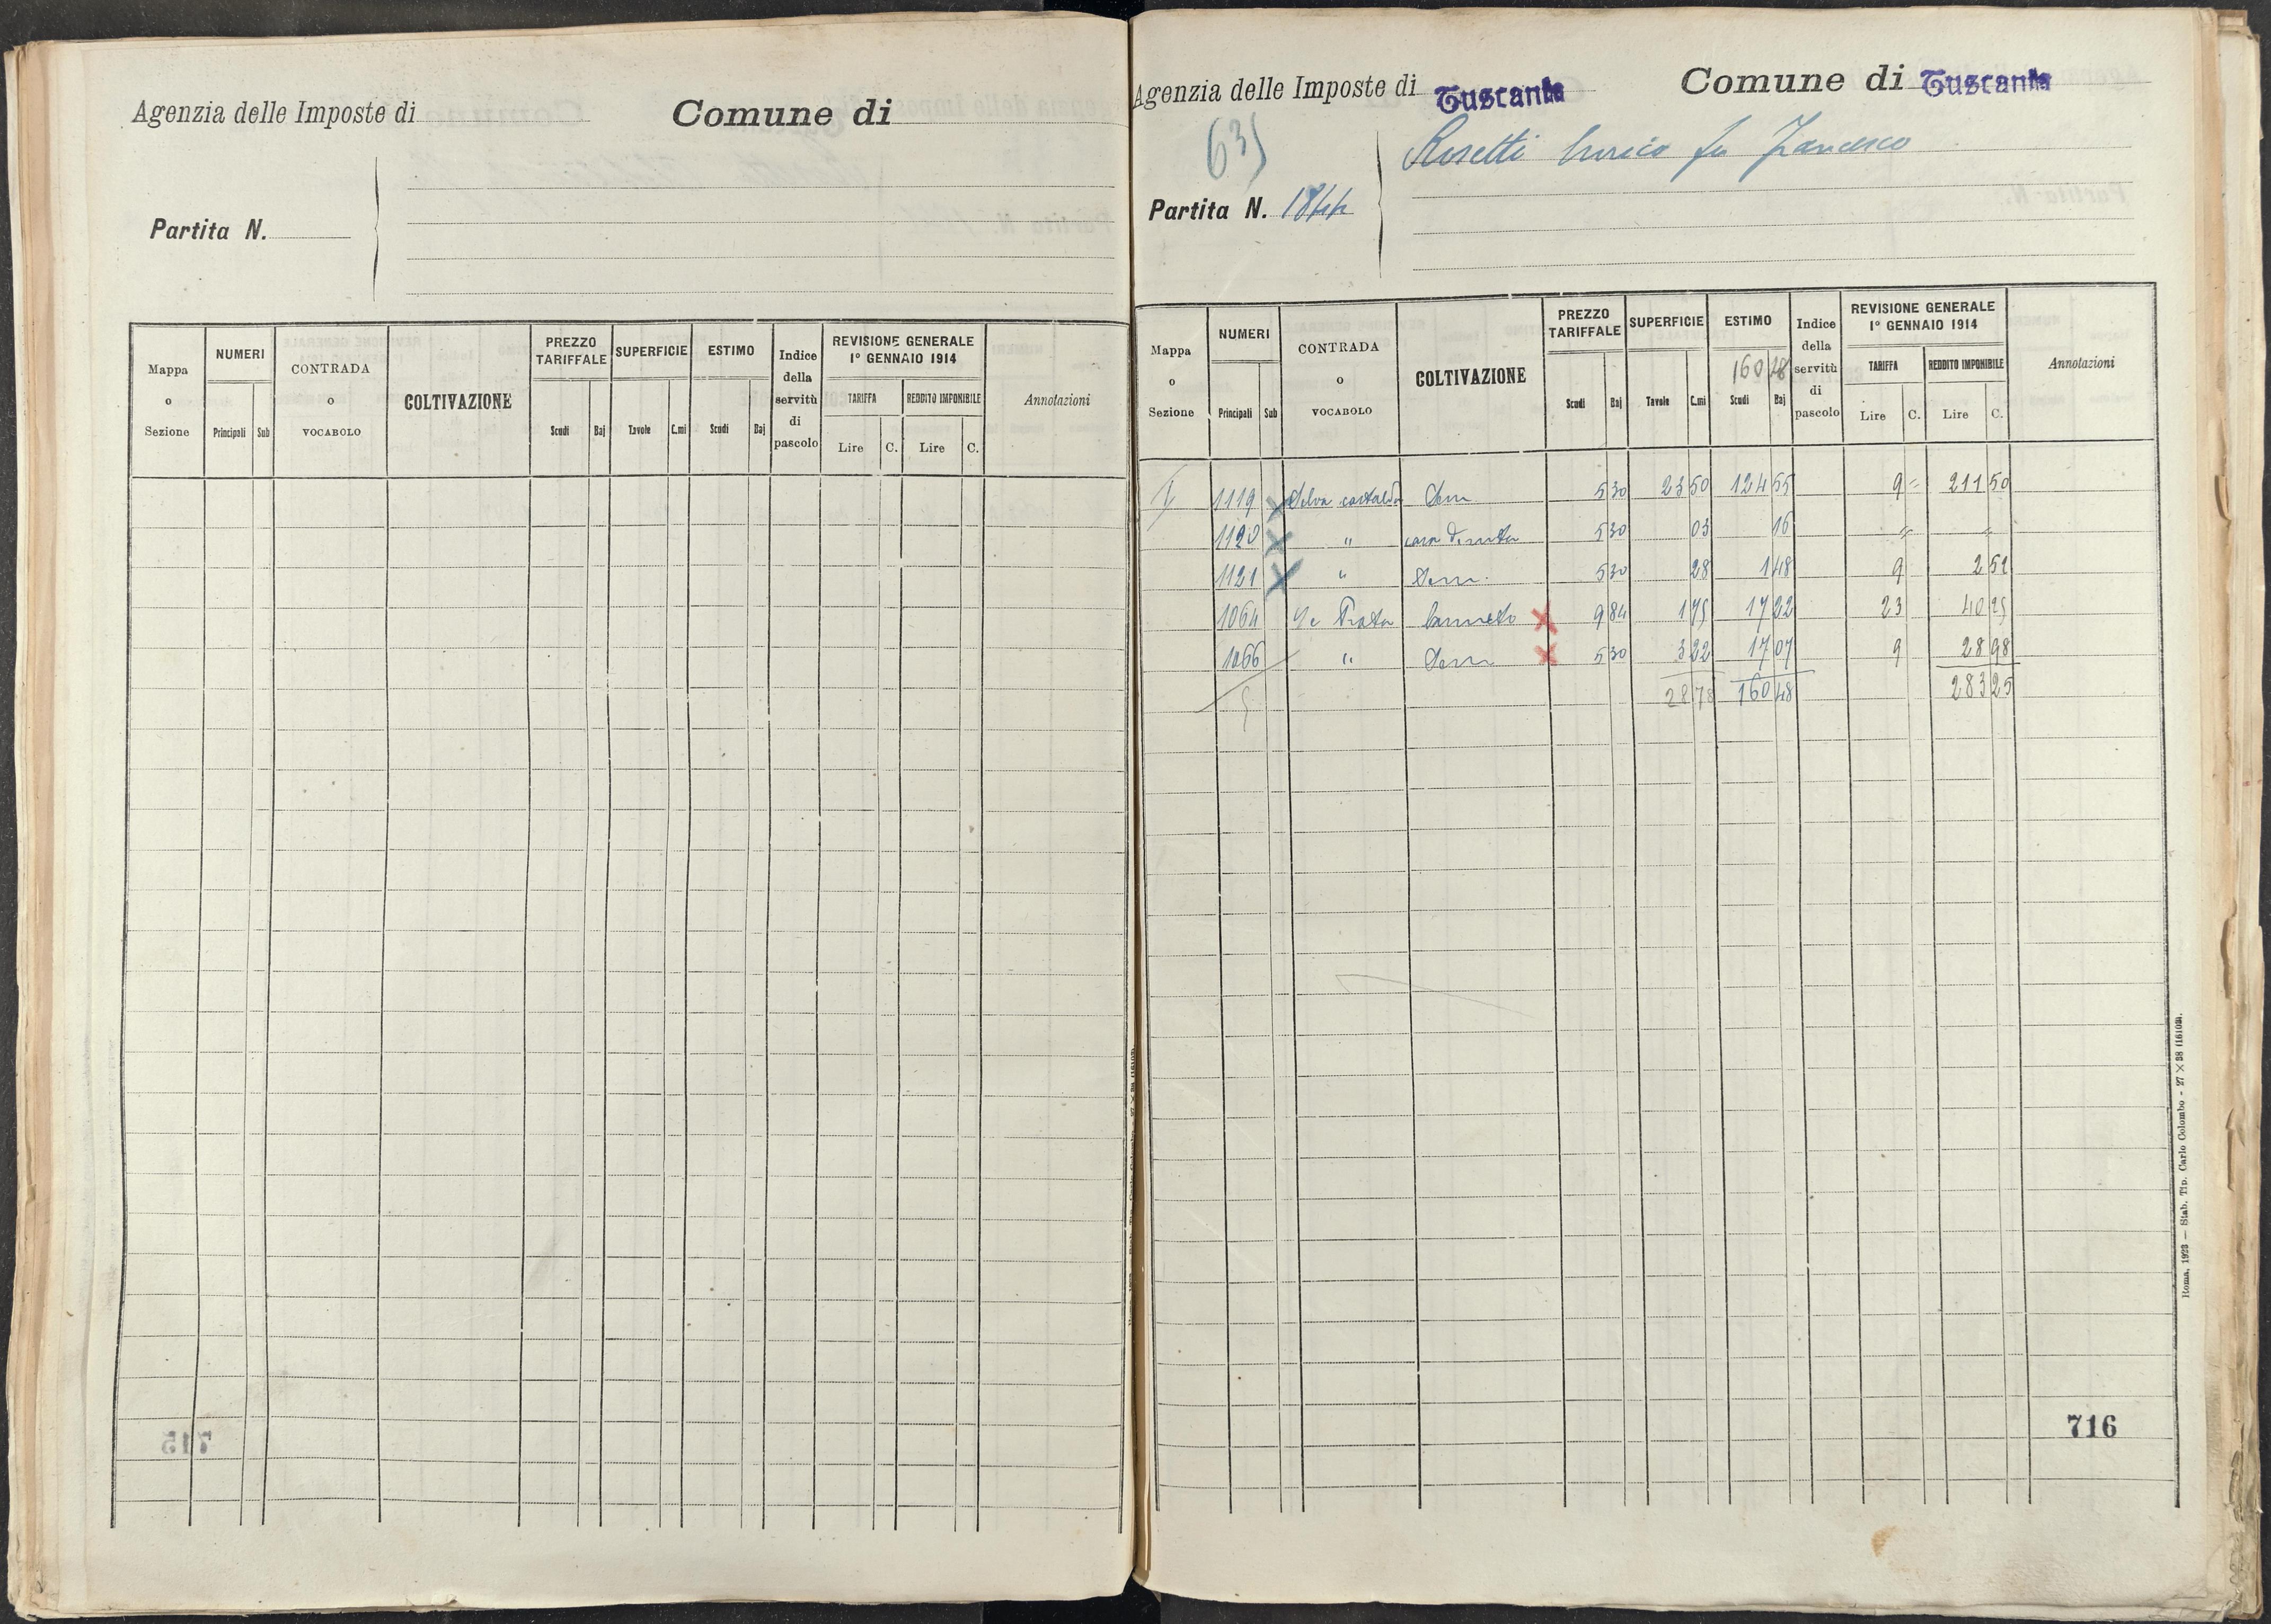 Agenzia delle Imposte di
Comune di
Partita N.
Mappa o Sezione
NUMERI
Principali Sub
CONTRADA o VOCABOLO
COLTIVAZIONE
PREZZO TARIFFALE
Scudi Baj
SUPERFICIE
Tavole C.mi
ESTIMO
Scudi Baj
Indice della servitù di pascolo
REVISIONE GENERALE
1° GENNAIO 1914
TARIFFA
Lire C.
REDDITO IMPONIBILE
Lire C.
Annotazioni
715
Agenzia delle Imposte di Tuscania
Comune di Tuscania
635
Rosetti Enrico fu Francesco
Partita N. 1844
Mappa o Sezione
NUMERI
Principali Sub
CONTRADA o VOCABOLO
COLTIVAZIONE
PREZZO TARIFFALE
Scudi Baj
SUPERFICIE
Tavole C.mi
ESTIMO
160 48
Scudi Baj
Indice della servitù di pascolo
REVISIONE GENERALE
1° GENNAIO 1914
TARIFFA
Lire C.
REDDITO IMPONIBILE
Lire C.
Annotazioni
1119 Selva Sem 5 30 23 50 124 55 9 = 211 50
1120 " casa diruta 5 30 03 16 " "
1121 " Sem. 5 30 28 1 48 9 2 52
1064 Prata Canneto 9 84 1 75 17 22 23 40 25
1066 " Sem 5 30 3 22 17 07 9 28 98
5 28 78 160 48 283 25
716
Roma, 1923 — Stab. Tip. Carlo Colombo - 27 × 38 (16103).